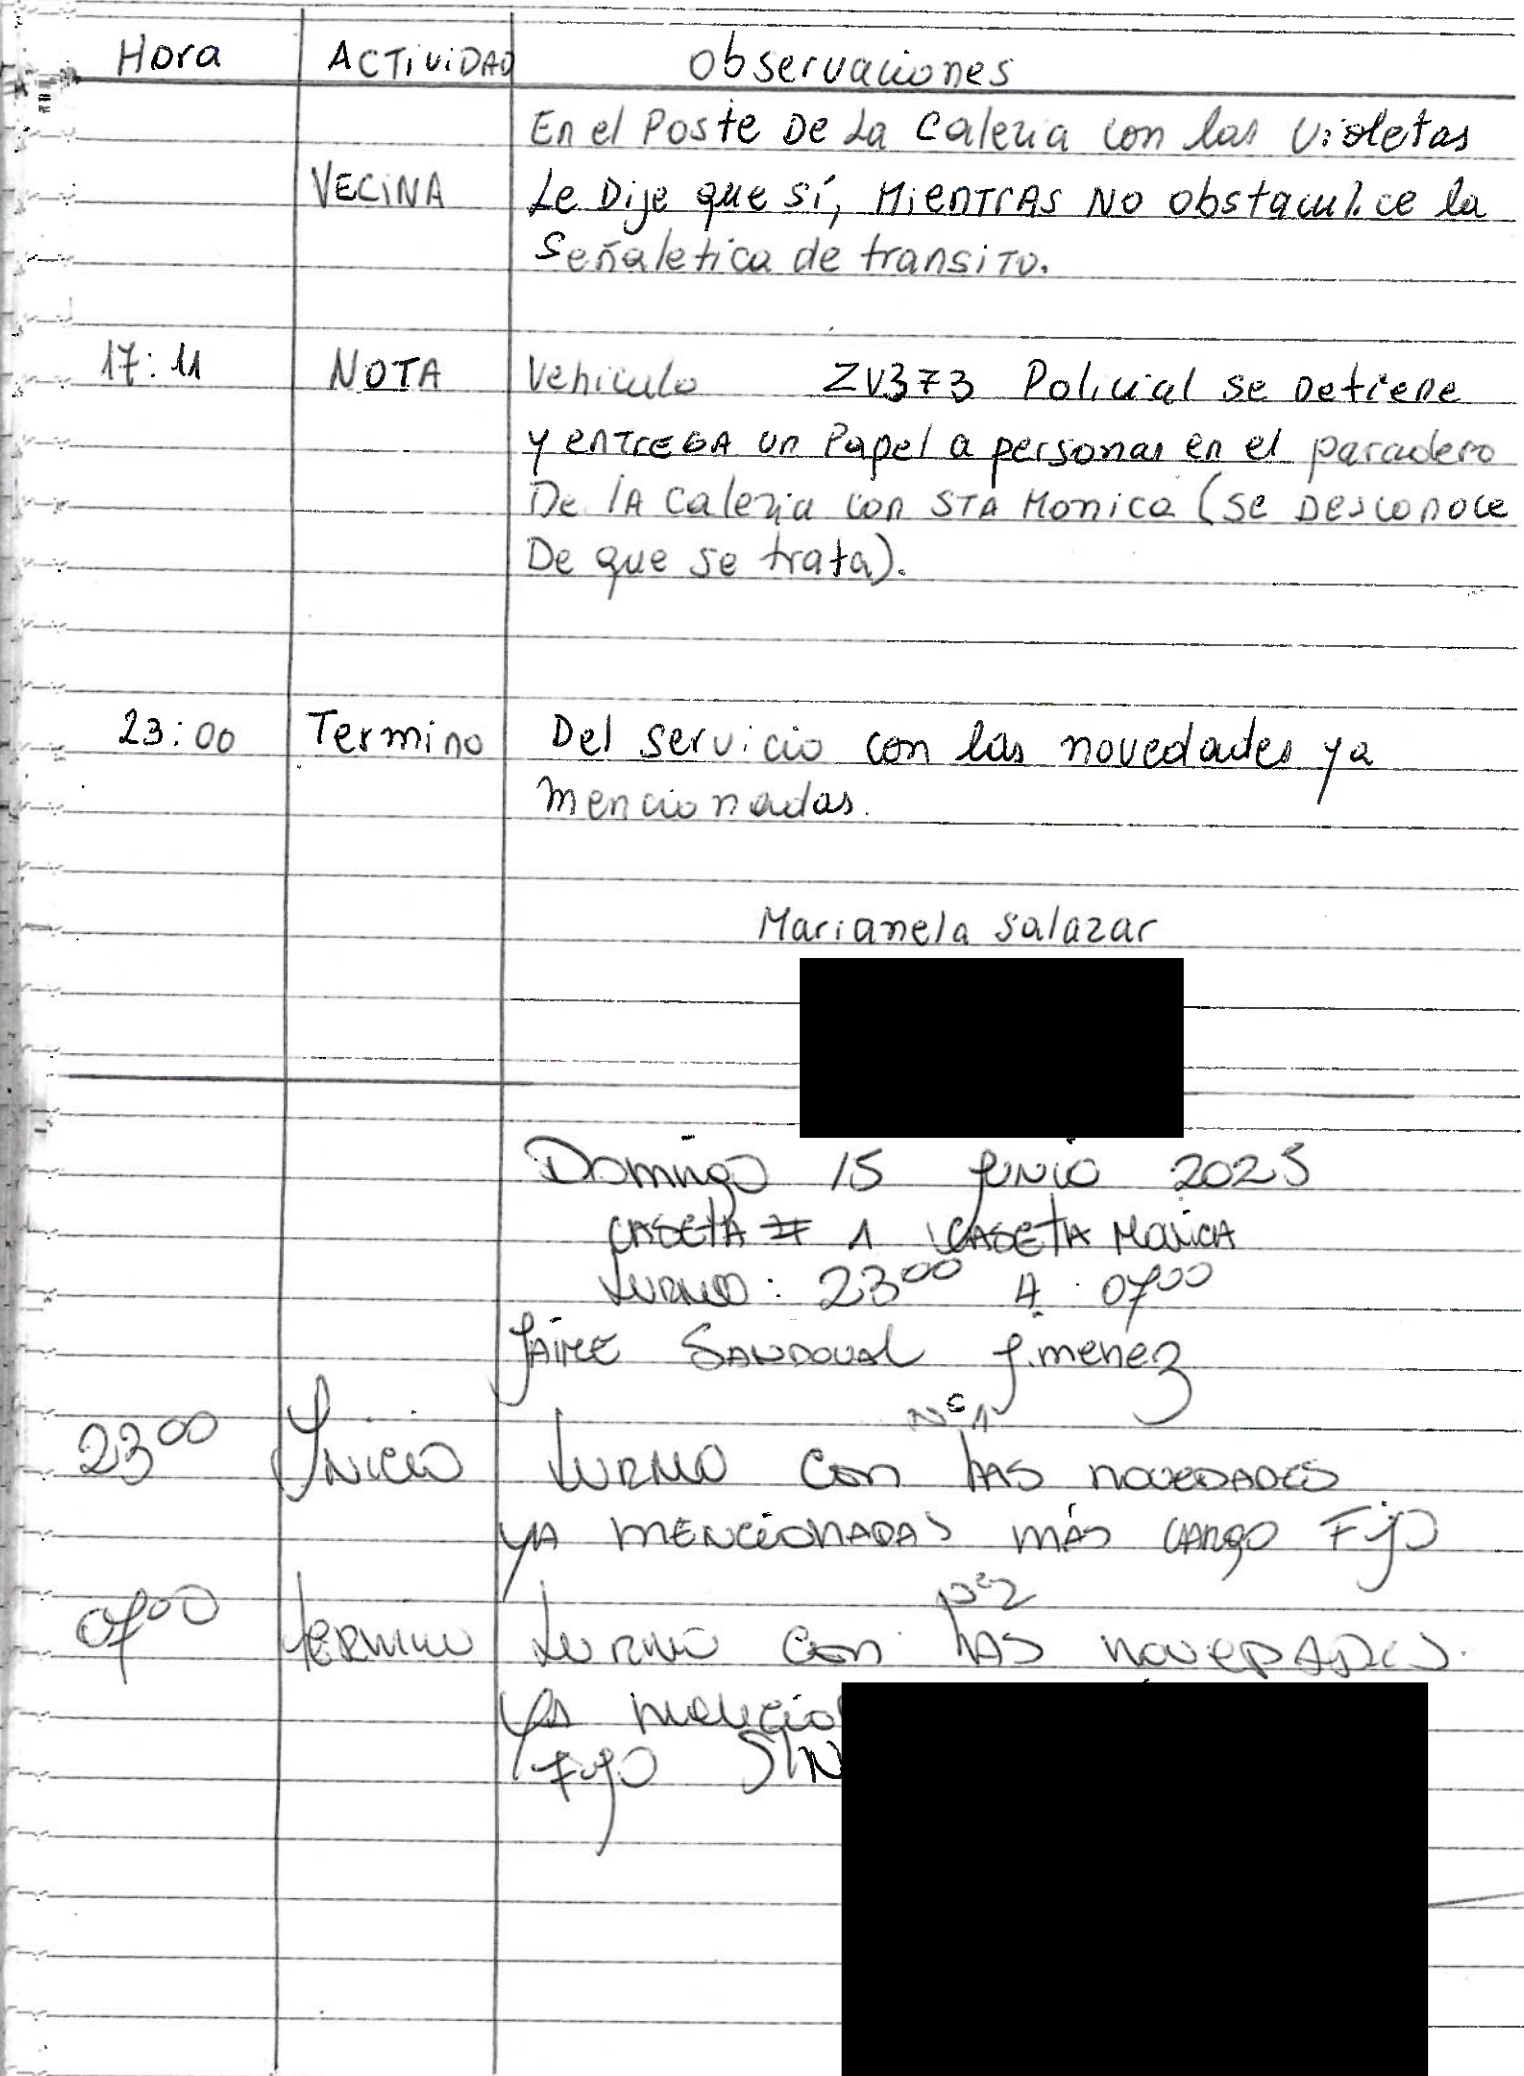 Hora ACTIVIDAD Observaciones
En el Poste De La Caleria con las Violetas
VECINA Le Dije que sí, MIENTRAS NO obstaculice la
Señaletica de transito.
17:11 NOTA Vehiculo ZV373 Policial se Detiene
y ENTREGA un Papel a personas en el paradero
De lA Caleria con STA Monica (se Desconoce
De que se trata).
23:00 Termino Del servicio con las novedades ya
mencionadas.
Marianela Salazar
Domingo 15 Junio 2025
CASETA # 1 CASETA
Turno: 2300 A 0700
JAIME SANDOVAL Jimenez
N°1
2300 Inicio Turno con LAS NOVEDADES
YA MENCIONADAS MÁS CARGO Fijo
N°2
0700 Termino Turno con LAS NOVEDADES
YA
Fijo SIN